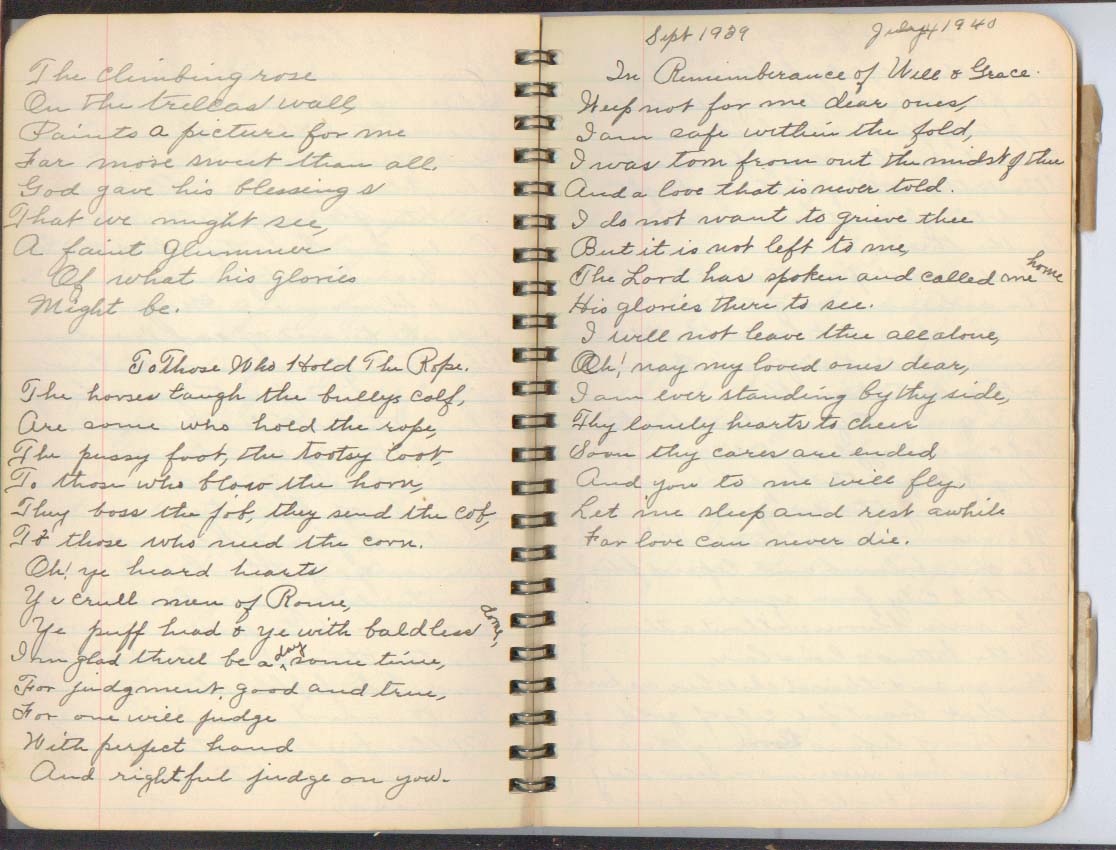 The climbing rose
On the trellas wall,
Paints a picture for me
Far more sweet than all.
God gave his blessings
That we might see,
A faint glummer
Of what his glories
Might be.
To Those Who Hold The Rope.
The horses taugh the bullys calf,
Are some who hold the rope,
The pussy foot, the tootsy toot,
To those who blow the horn,
They boss the job, they send the cob,
To those who need the corn.
Oh! ye heard hearts
Ye crull men of Rome,
Ye puff head & ye with baldless dome,
Im glad therel be a day some time,
For judgment, good and true,
For one will judge
With perfect hand
And rightful judge on you.
Sept 1939 July 4 1940
In Rememberance of Will & Grace.
Weep not for me dear ones,
I am safe within the fold,
I was torn from out the midst of thee
And a love that is never told.
I do not want to grieve thee
But it is not left to me,
The Lord has spoken and called me home
His glories there to see.
I will not leave thee all alone,
Oh! nay my loved ones dear,
I am ever standing by thy side,
Thy lonely hearts to cheer
Soon thy cares are ended
And you to me will fly,
Let me sleep and rest awhile
For love can never die.